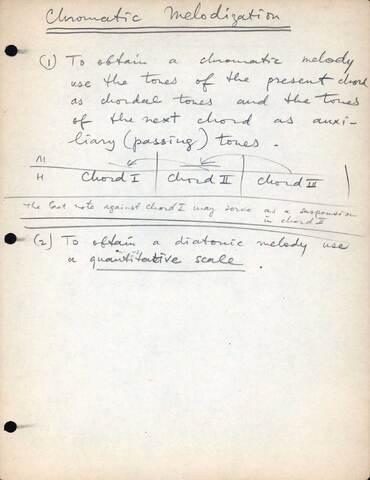 Chromatic Melodization
(1) To obtain a chromatic melody
use the tones of the present chord
as chordal tones and the tones
of the next chord as auxi-
liary (passing) tones.
M
H Chord I Chord II Chord III
The last note against chord I may serve as a suspension
in chord II
(2) To obtain a diatonic melody use
a quantitative scale.